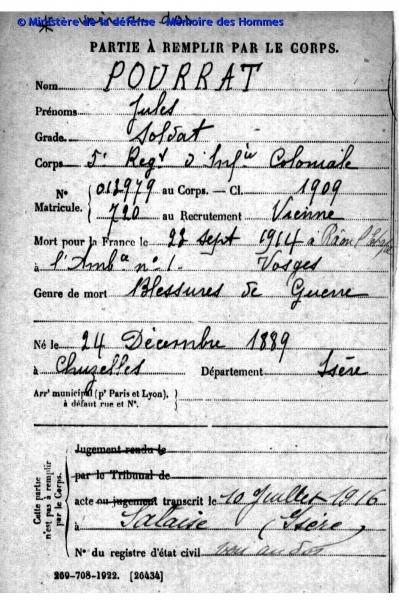 © Ministère de la défense - Mémoire des Hommes
PARTIE À REMPLIR PAR LE CORPS.
Nom POURRAT
Prénoms Jules
Grade Soldat
Corps 5e Regt d'Infie Coloniale
N° Matricule. 012979 au Corps. — Cl. 1909
720 au Recrutement Vienne
Mort pour la France le 22 sept 1914 à Raon l'Etape
à l'Ambce n° 1. Vosges
Genre de mort Blessures de Guerre
Né le 24 Décembre 1889
à Chuzelles Département Isère
Arrt municipal (pr Paris et Lyon),
à défaut rue et N°.
Cette partie n'est pas à remplir par le Corps.
Jugement rendu le
par le Tribunal de
acte ou jugement transcrit le 10 Juillet 1916
à Salaise (Isère)
N° du registre d'état civil
269-708-1922. [26434]